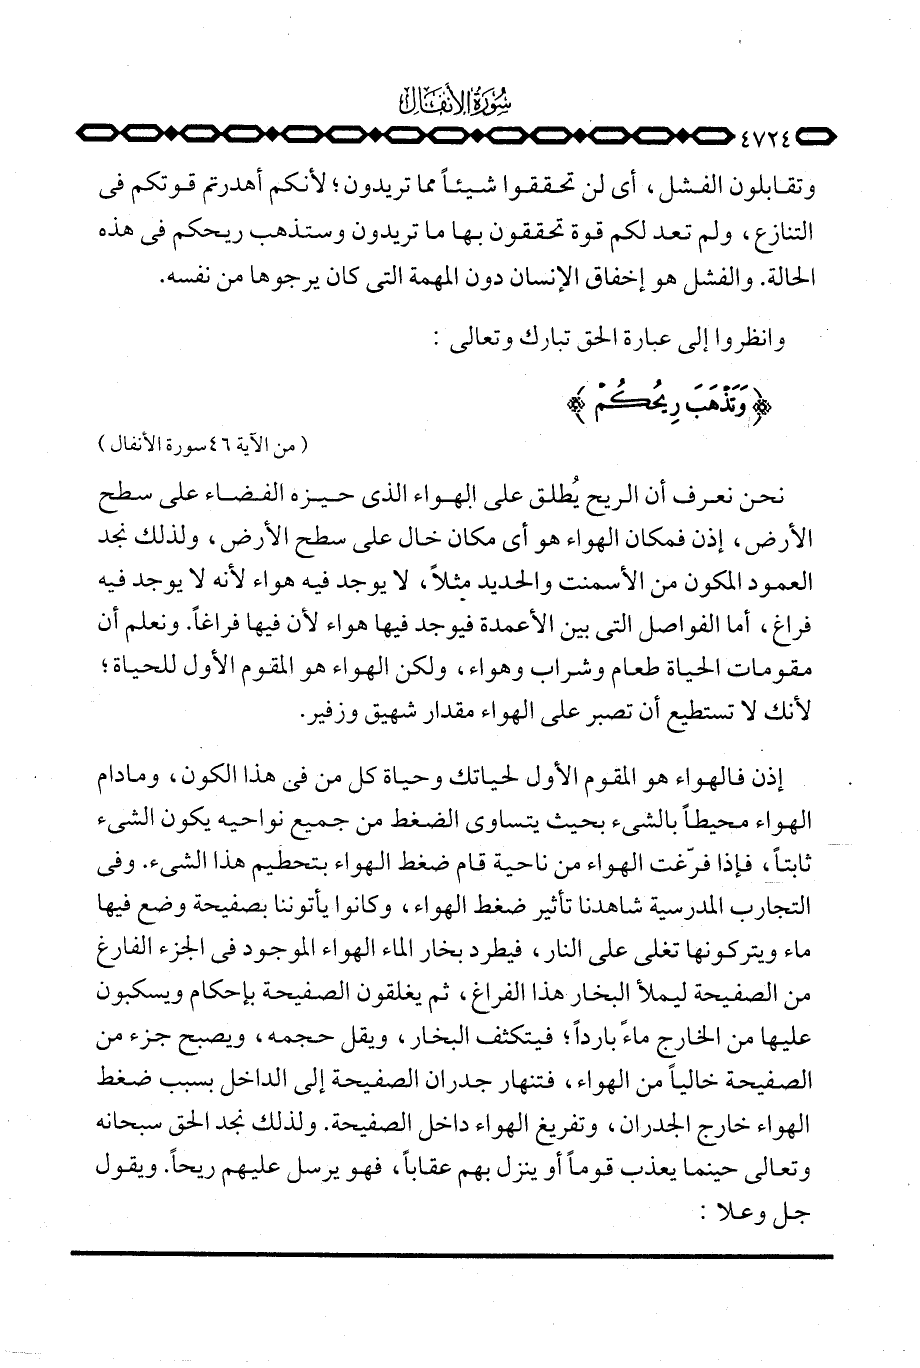 سورة الأنفال
٤٧٢٤
وتقابلون الفشل، أى لن تحققوا شيئاً مما تريدون؛ لأنكم أهدرتم قوتكم فى
التنازع، ولم تعد لكم قوة تحققون بها ما تريدون وستذهب ريحكم فى هذه
الحالة. والفشل هو إخفاق الإنسان دون المهمة التى كان يرجوها من نفسه.
وانظروا إلى عبارة الحق تبارك وتعالى :
﴿ وَتَذْهَبَ رِيحُكُمْ ﴾
( من الآية ٤٦ سورة الأنفال )
نحن نعرف أن الريح يُطلق على الهواء الذى حيزه الفضاء على سطح
الأرض، إذن فمكان الهواء هو أى مكان خال على سطح الأرض، ولذلك نجد
العمود المكون من الأسمنت والحديد مثلاً، لا يوجد فيه هواء لأنه لا يوجد فيه
فراغ، أما الفواصل التى بين الأعمدة فيوجد فيها هواء لأن فيها فراغاً. ونعلم أن
مقومات الحياة طعام وشراب وهواء، ولكن الهواء هو المقوم الأول للحياة؛
لأنك لا تستطيع أن تصبر على الهواء مقدار شهيق وزفير.
إذن فالهواء هو المقوم الأول لحياتك وحياة كل من فى هذا الكون، ومادام
الهواء محيطاً بالشىء بحيث يتساوى الضغط من جميع نواحيه يكون الشىء
ثابتاً، فإذا فرّغت الهواء من ناحية قام ضغط الهواء بتحطيم هذا الشىء. وفى
التجارب المدرسية شاهدنا تأثير ضغط الهواء، وكانوا يأتوننا بصفيحة وضع فيها
ماء ويتركونها تغلى على النار، فيطرد بخار الماء الهواء الموجود فى الجزء الفارغ
من الصفيحة ليملأ البخار هذا الفراغ، ثم يغلقون الصفيحة بإحكام ويسكبون
عليها من الخارج ماءً بارداً؛ فيتكثف البخار، ويقل حجمه، ويصبح جزء من
الصفيحة خالياً من الهواء، فتنهار جدران الصفيحة إلى الداخل بسبب ضغط
الهواء خارج الجدران، وتفريغ الهواء داخل الصفيحة. ولذلك نجد الحق سبحانه
وتعالى حينما يعذب قوماً أو ينزل بهم عقاباً، فهو يرسل عليهم ريحاً. ويقول
جل وعلا :